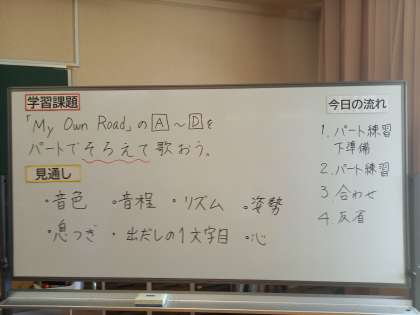 学習課題
「My Own Road」の A ～ D を
パートでそろえて歌おう。
見通し
・音色 ・音程 ・リズム ・姿勢
・息つぎ ・出だしの1文字目 ・心
今日の流れ
1. パート練習
下準備
2. パート練習
3. 合わせ
4. 反省